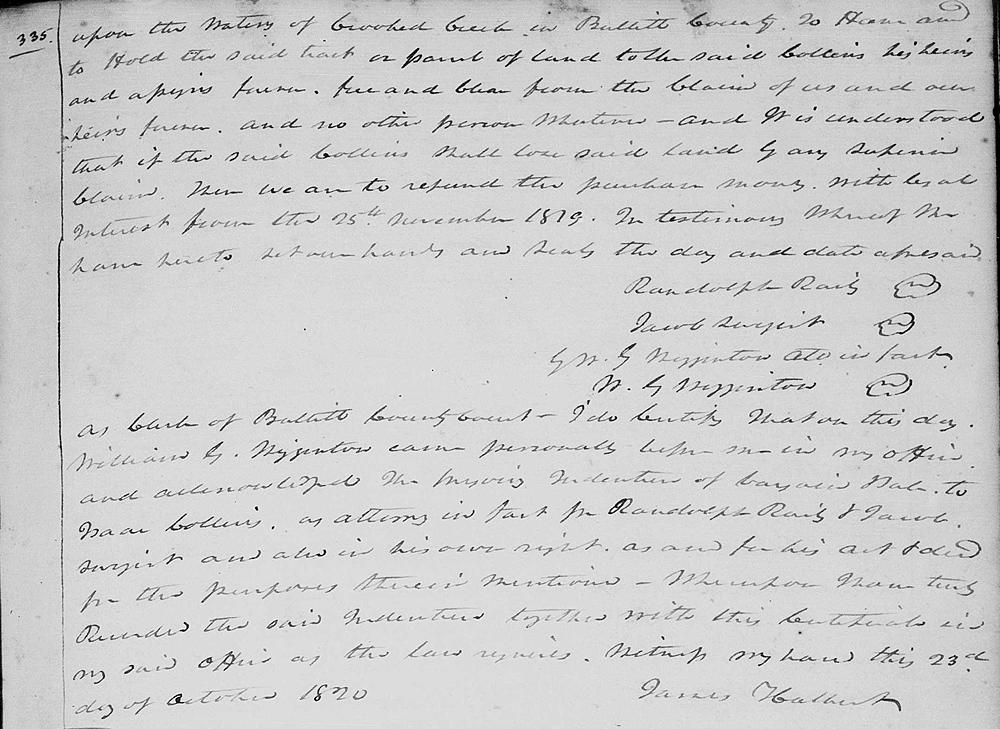 335. upon the Waters of Crooked Creek in Bullitt County. To Have and
to Hold the said tract or parcel of land to the said Collins his heirs
and assigns forever. free and clear from the claim of us and our
heirs forever. and no other person whatever - and it is understood
that if the said Collins shall lose said land by any superior
claim. Then we are to refund the purchase money. with legal
Interest from the 25th November 1819. In testimony whereof We
have hereto set our hands and seals the day and date aforesaid
Randolph Raily
Jacob Surgirt
By W. G Wigginton Atto in fact
W. G Wigginton
As Clerk of Bullitt County Court - I do Certify that on this day.
William G. Wigginton came personally before me in my office
and acknowledged the foregoing Indenture of bargain Sale. to
Isaac Collins. as attorney in fact for Randolph Raily & Jacob.
Surgirt and also in his own right. as and for his act & deed
for the purposes therein mention - Whereupon I have truly
Recorded the said Indenture together with this Certificate in
my said office as the law requires. Witness my hand this 23d
day of October 1820 James Halbert